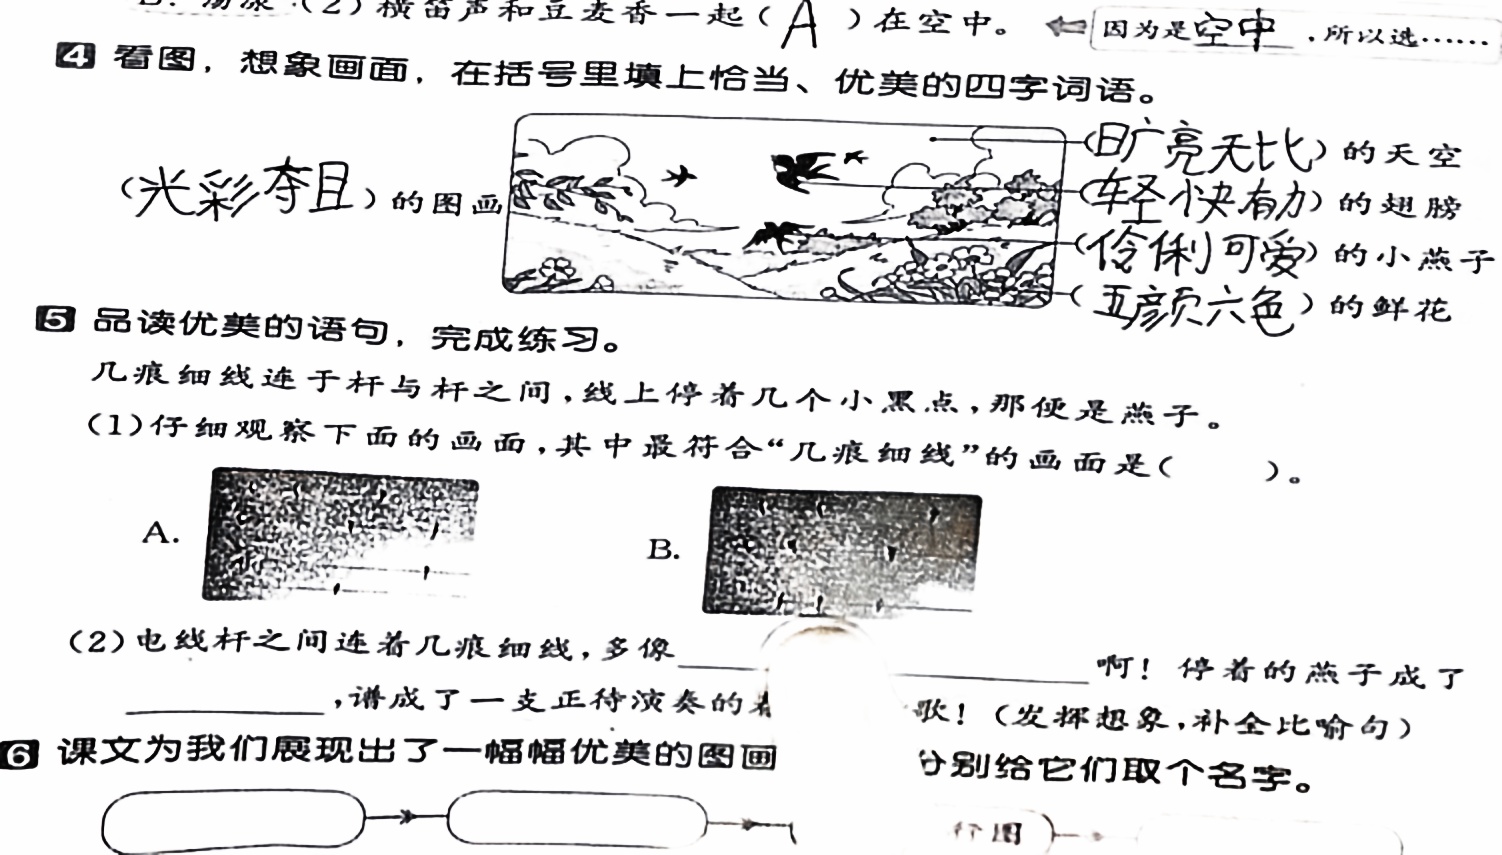 B. 荡漾 (2)横笛声和豆麦香一起( A )在空中。 因为是空中,所以选……
4 看图，想象画面，在括号里填上恰当、优美的四字词语。
(旷亮无比)的天空
(光彩夺目)的图画
(轻快有力)的翅膀
(伶俐可爱)的小燕子
(五颜六色)的鲜花
5 品读优美的语句，完成练习。
几痕细线连于杆与杆之间,线上停着几个小黑点,那便是燕子。
(1)仔细观察下面的画面,其中最符合“几痕细线”的画面是( )。
A. B.
(2)电线杆之间连着几痕细线,多像________啊！停着的燕子成了
________,谱成了一支正待演奏的 歌！(发挥想象,补全比喻句)
6 课文为我们展现出了一幅幅优美的图画 分别给它们取个名字。
图